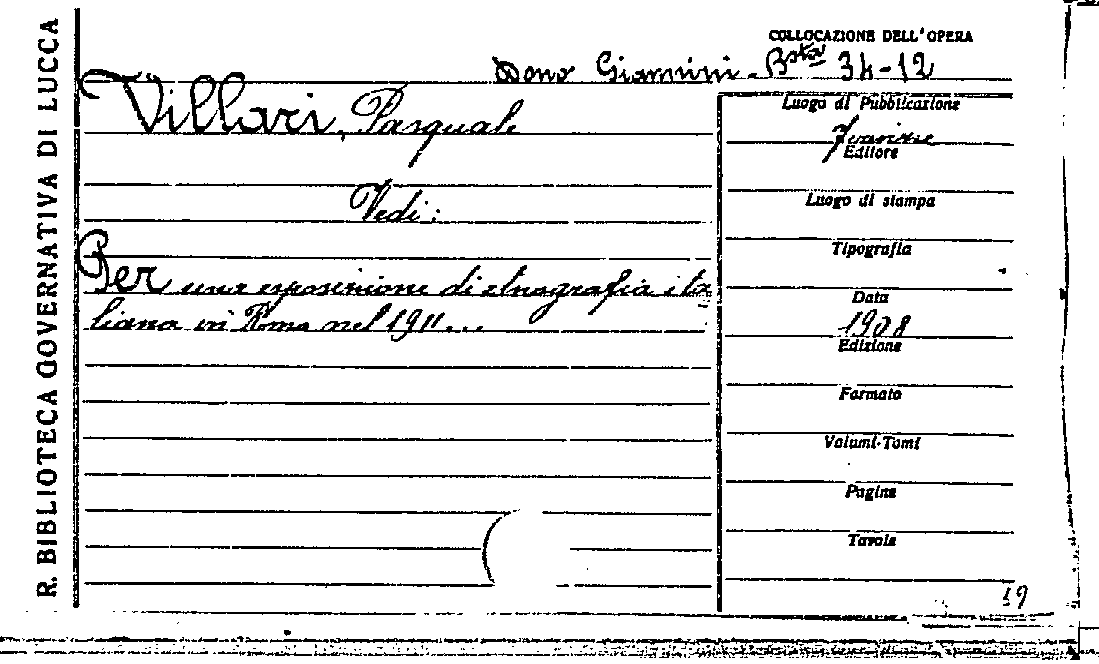 R. BIBLIOTECA GOVERNATIVA DI LUCCA
COLLOCAZIONE DELL'OPERA
Dono Giannini - Bsta 34-12
Villari, Pasquale
Vedi:
Per una esposizione di etnografia ita
liana in Roma nel 1911...
Luogo di Pubblicazione
Firenze
Editore
Luogo di stampa
Tipografia
Data
1908
Edizione
Formato
Volumi-Tomi
Pagine
Tavole
19